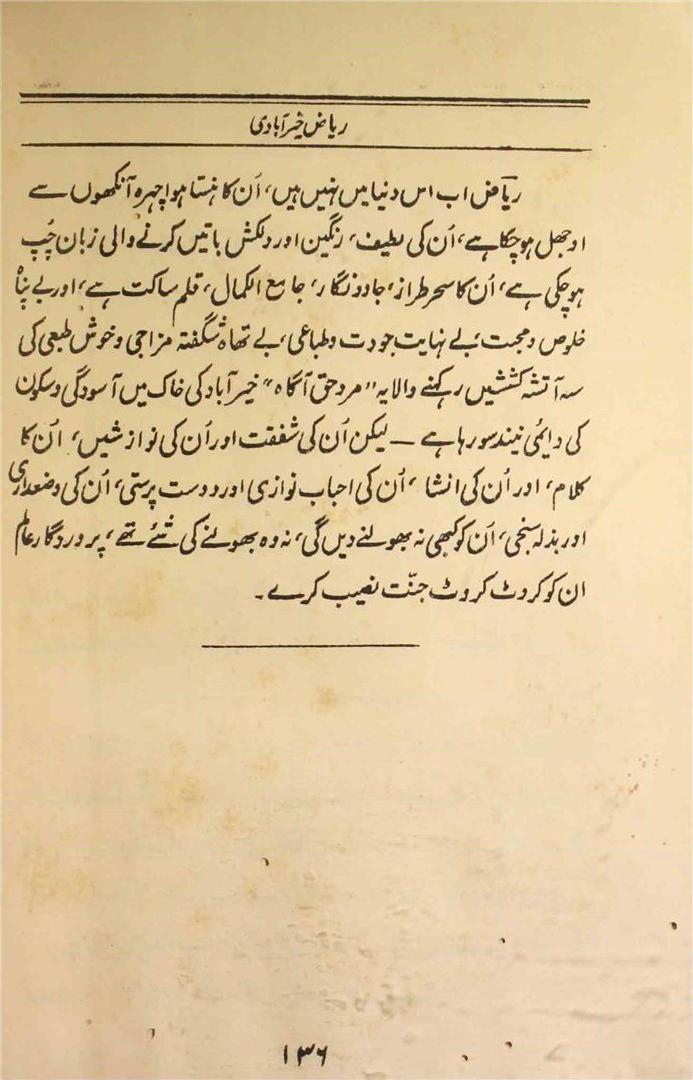 ریاض خیرآبادی
ریاضؔ اب اس دنیا میں نہیں ہیں، اُن کا ہنستا ہوا چہرہ آنکھوں سے
اوجھل ہو چکا ہے، اُن کی لطیف، رنگین اور دلکش باتیں کرنے والی زبان چُپ
ہو چکی ہے، اُن کا سحر طراز، جادو نگار، جامع الکمال، قلم ساکت ہے، اور بے پناہ
خلوص و محبت، بے نہایت جودت و طباعی، بے تھاہ شگفتہ مزاجی و خوش طبعی کی
سہ آتشہ کششیں رکھنے والا یہ "مردِ حق آگاہ" خیرآباد کی خاک میں آسودگی و سکون
کی دایمی نیند سو رہا ہے — لیکن اُن کی شفقت اور اُن کی نوازشیں، اُن کا
کلام، اور اُن کی انشا، اُن کی احباب نوازی اور دوست پرستی، اُن کی وضعداری
اور بذلہ سنجی، اُن کو کبھی نہ بھولنے دیں گی، نہ وہ بھولنے کی شئے تھے، پروردگار عالم
ان کو کروٹ کروٹ جنّت نصیب کرے۔
۱۳۶